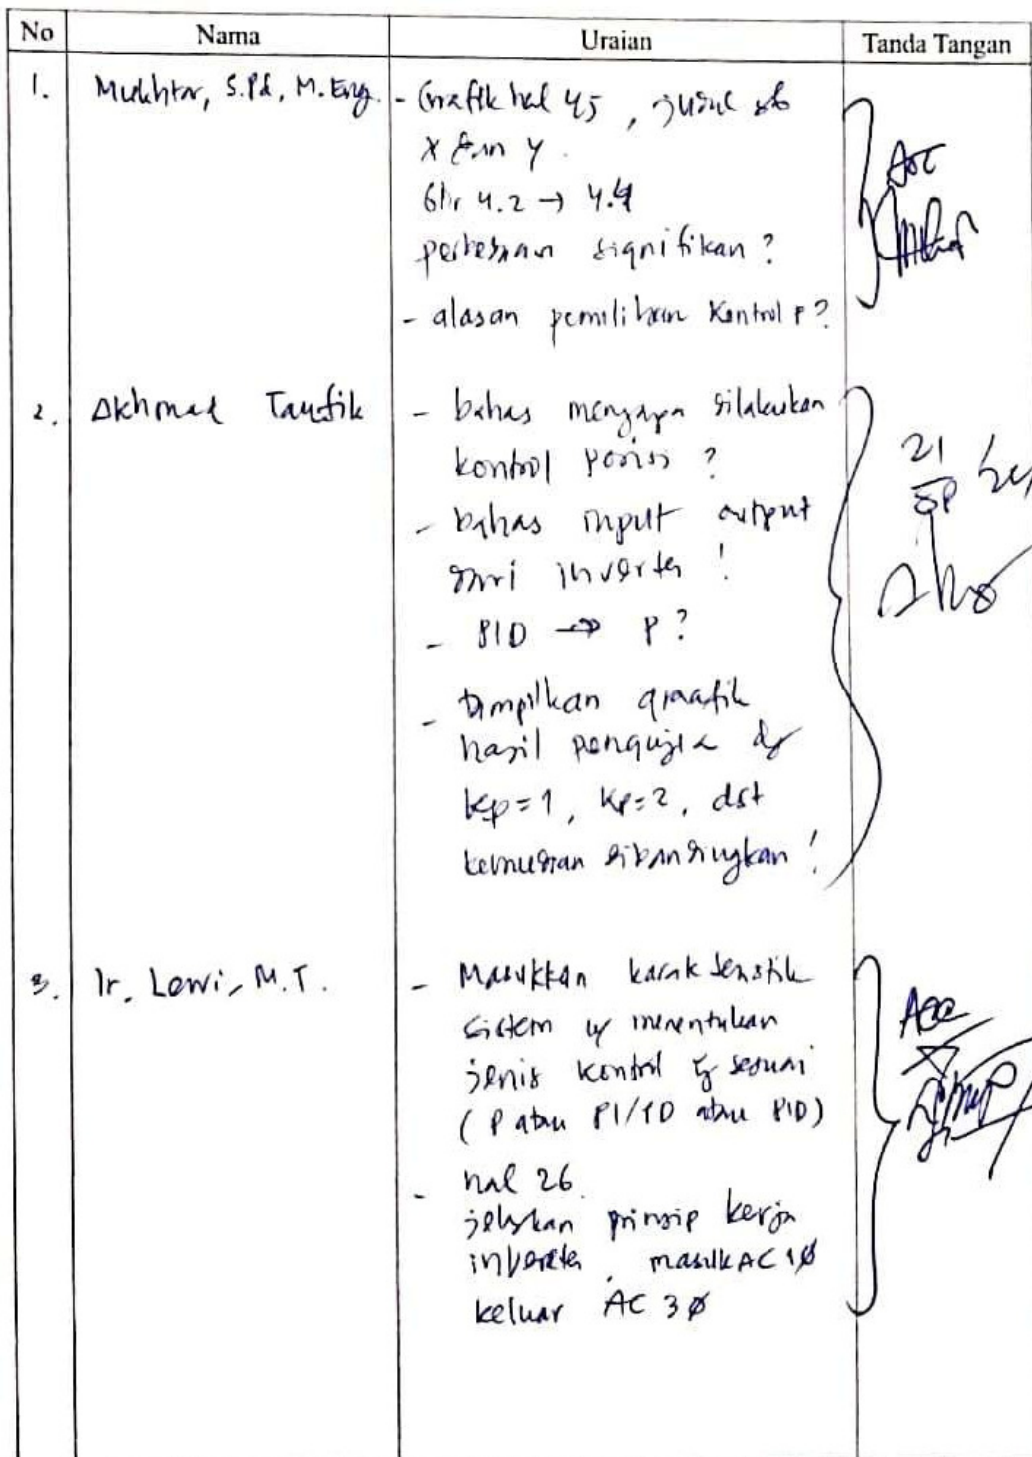 No Nama Uraian Tanda Tangan
1. Mukhtar, S.Pd, M.Eng. - Grafik hal 45, judul sb
x dan y.
Gbr 4.2 → 4.4
perbedaan signifikan?
- alasan pemilihan kontrol P?
Acc
2. Akhmad Taufik - bahas mengapa dilakukan
kontrol posisi?
- bahas input output
dari inverter!
- PID → P?
- Tampilkan graafik
hasil pengujia dg
kp=1, kp=2, dst
kemudian dibandingkan!
21
3. Ir. Lewi, M.T. - Masukkan karakteristik
sistem u/ menentukan
jenis kontrol yg sesuai
(P atau PI/PD atau PID)
- hal 26.
jelaskan prinsip kerja
inverter, masuk AC 1ø
keluar AC 3ø
Acc